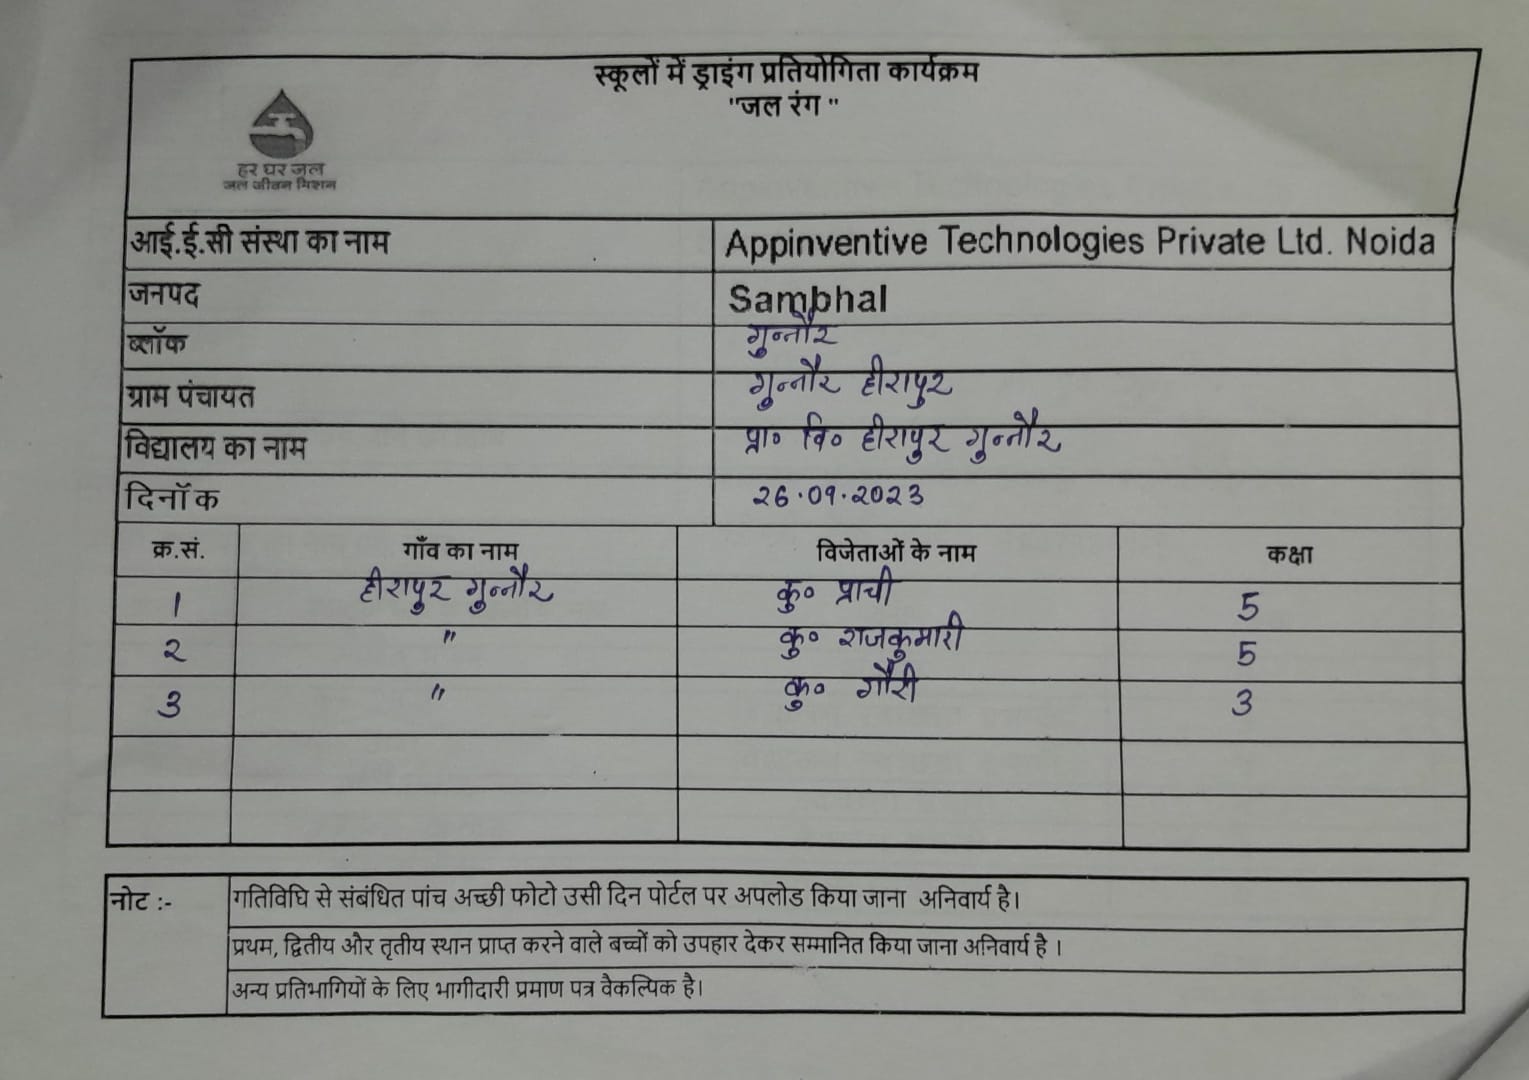 स्कूलों में ड्राइंग प्रतियोगिता कार्यक्रम
"जल रंग "
हर घर जल
जल जीवन मिशन
आई.ई.सी संस्था का नाम Appinventive Technologies Private Ltd. Noida
जनपद Sambhal
ब्लॉक गुन्नौर
ग्राम पंचायत गुन्नौर हीरापुर
विद्यालय का नाम प्रा० वि० हीरापुर गुन्नौर
दिनॉक 26.09.2023
क्र.सं. गाँव का नाम विजेताओं के नाम कक्षा
1 हीरापुर गुन्नौर कु० प्राची 5
2 " कु० राजकुमारी 5
3 " कु० गौरी 3
नोट :- गतिविधि से संबंधित पांच अच्छी फोटो उसी दिन पोर्टल पर अपलोड किया जाना अनिवार्य है।
प्रथम, द्वितीय और तृतीय स्थान प्राप्त करने वाले बच्चों को उपहार देकर सम्मानित किया जाना अनिवार्य है ।
अन्य प्रतिभागियों के लिए भागीदारी प्रमाण पत्र वैकल्पिक है।